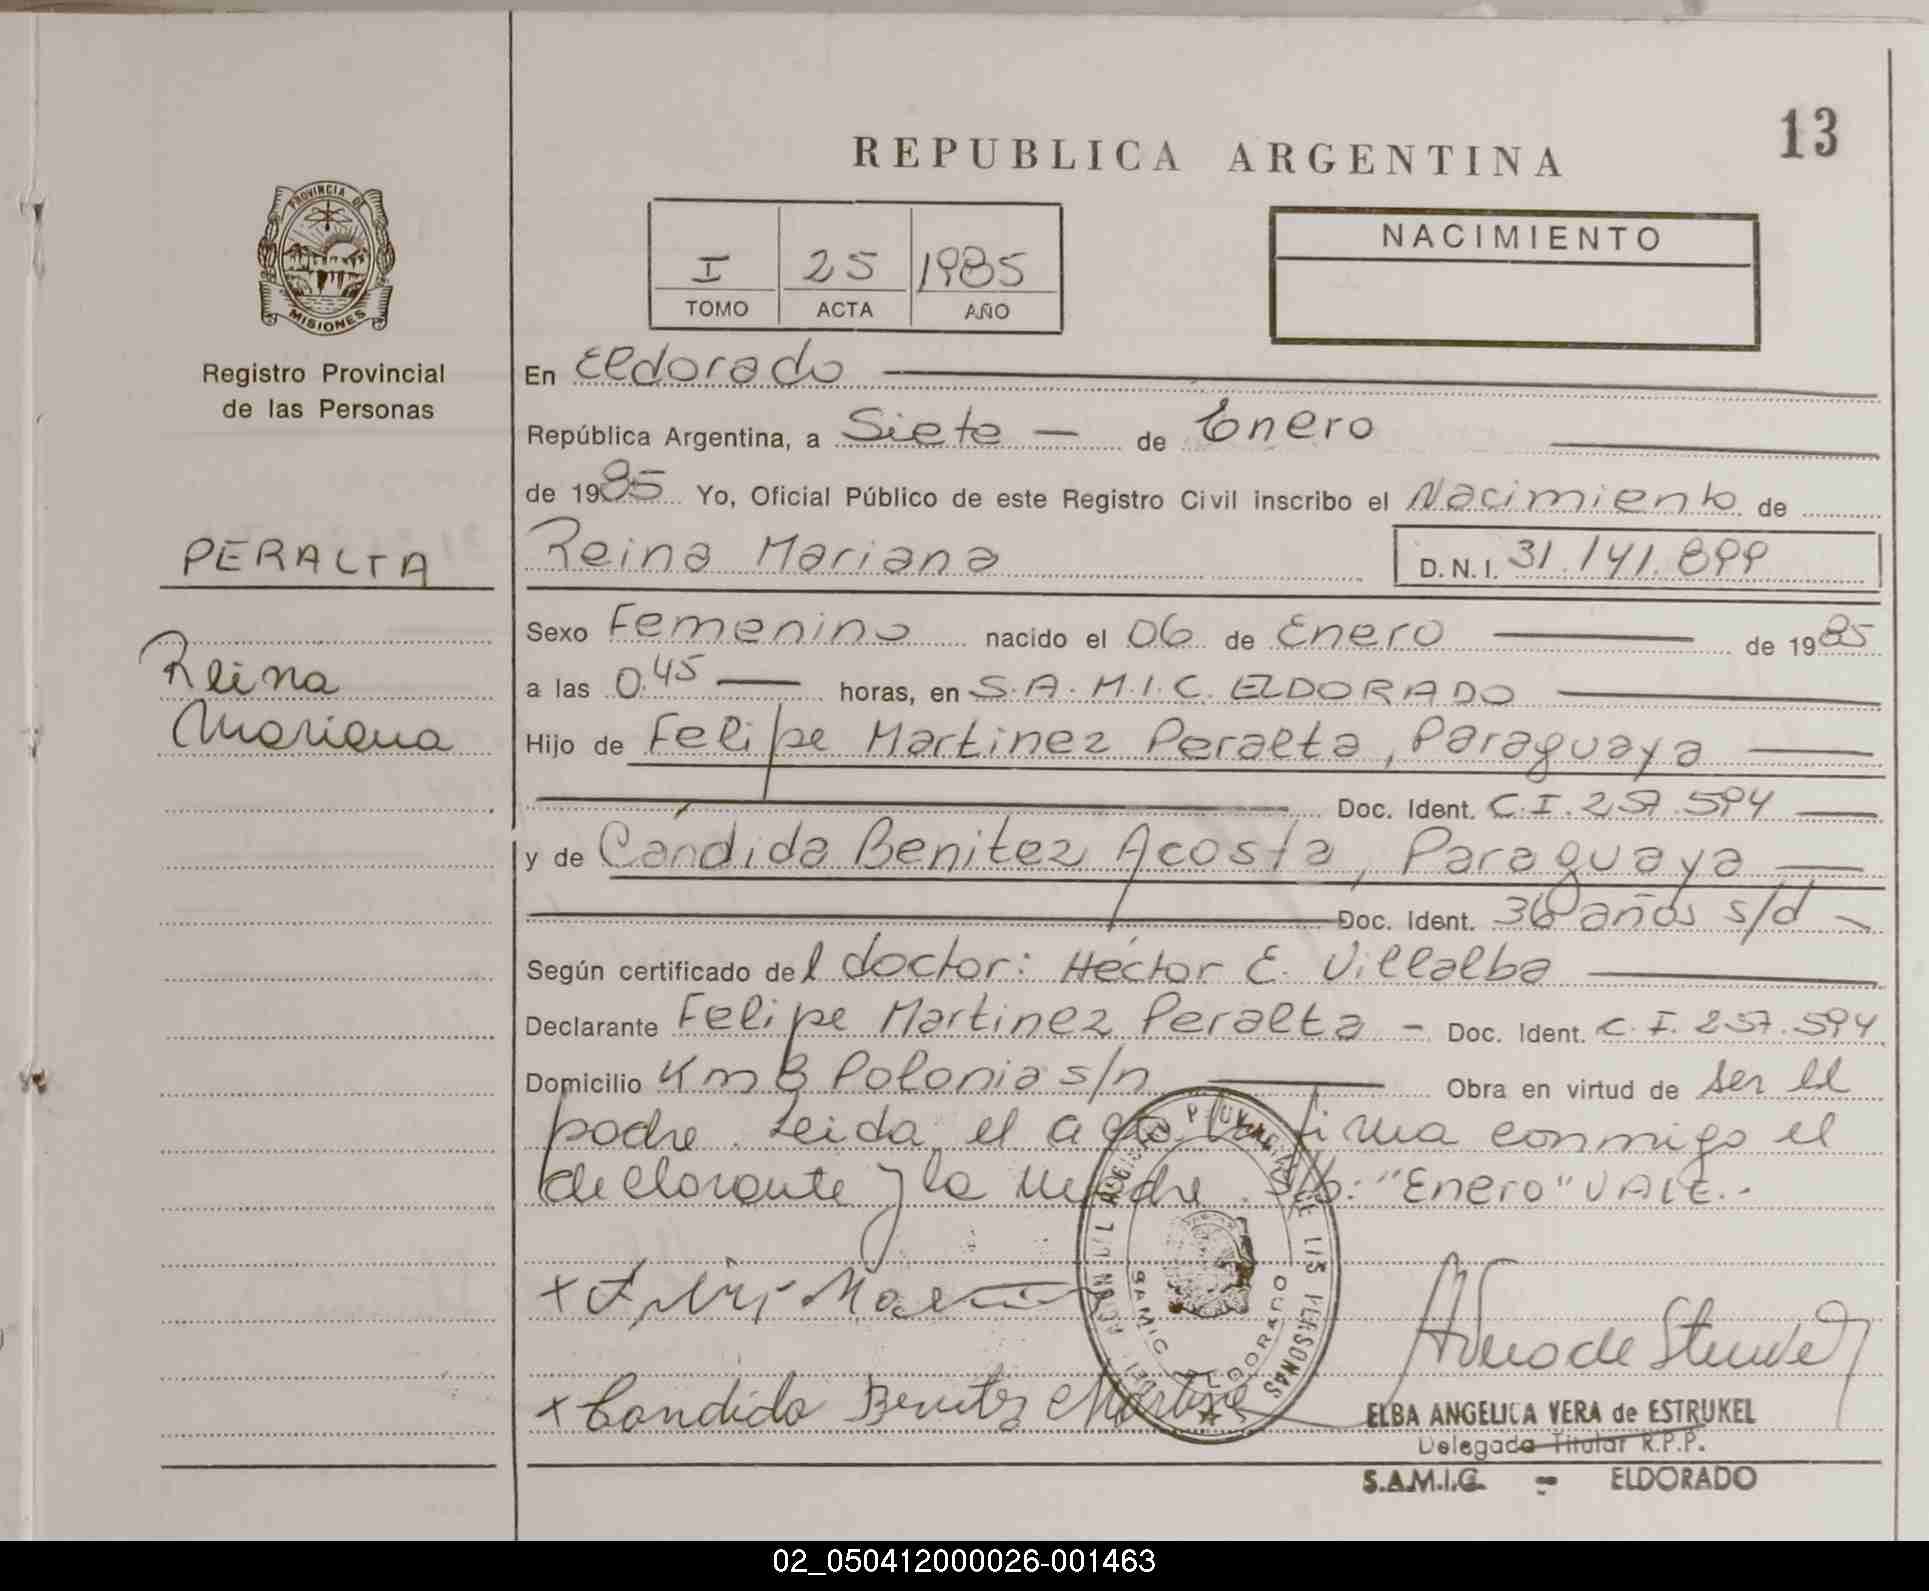 13
REPUBLICA ARGENTINA
PROVINCIA DE
MISIONES
Registro Provincial
de las Personas
I 25 1985
TOMO ACTA AÑO
NACIMIENTO
En Eldorado
República Argentina, a Siete — de Enero
de 1985 Yo, Oficial Público de este Registro Civil inscribo el Nacimiento de
PERALTA
Reina Mariana D.N.I. 31.141.899
Reina
Mariana
Sexo Femenino nacido el 06 de Enero — de 1985
a las 0.45 — horas, en S.A.M.I.C. ELDORADO
Hijo de Felipe Martinez Peralta, Paraguaya
Doc. Ident. C.I. 257.594
y de Cándida Benitez Acosta, Paraguaya
Doc. Ident. 36 años s/d
Según certificado del doctor: Héctor E. Villalba
Declarante Felipe Martinez Peralta - Doc. Ident. C.I. 257.594
Domicilio Km 8 Polonia s/n — Obra en virtud de ser el
padre. Leida el acta la firma conmigo el
declarante y la madre. S/b: "Enero" VALE.-
x Candida Benitez
ELBA ANGELICA VERA de ESTRUKEL
Delegada Titular R.P.P.
S.A.M.I.C. - ELDORADO
02_050412000026-001463